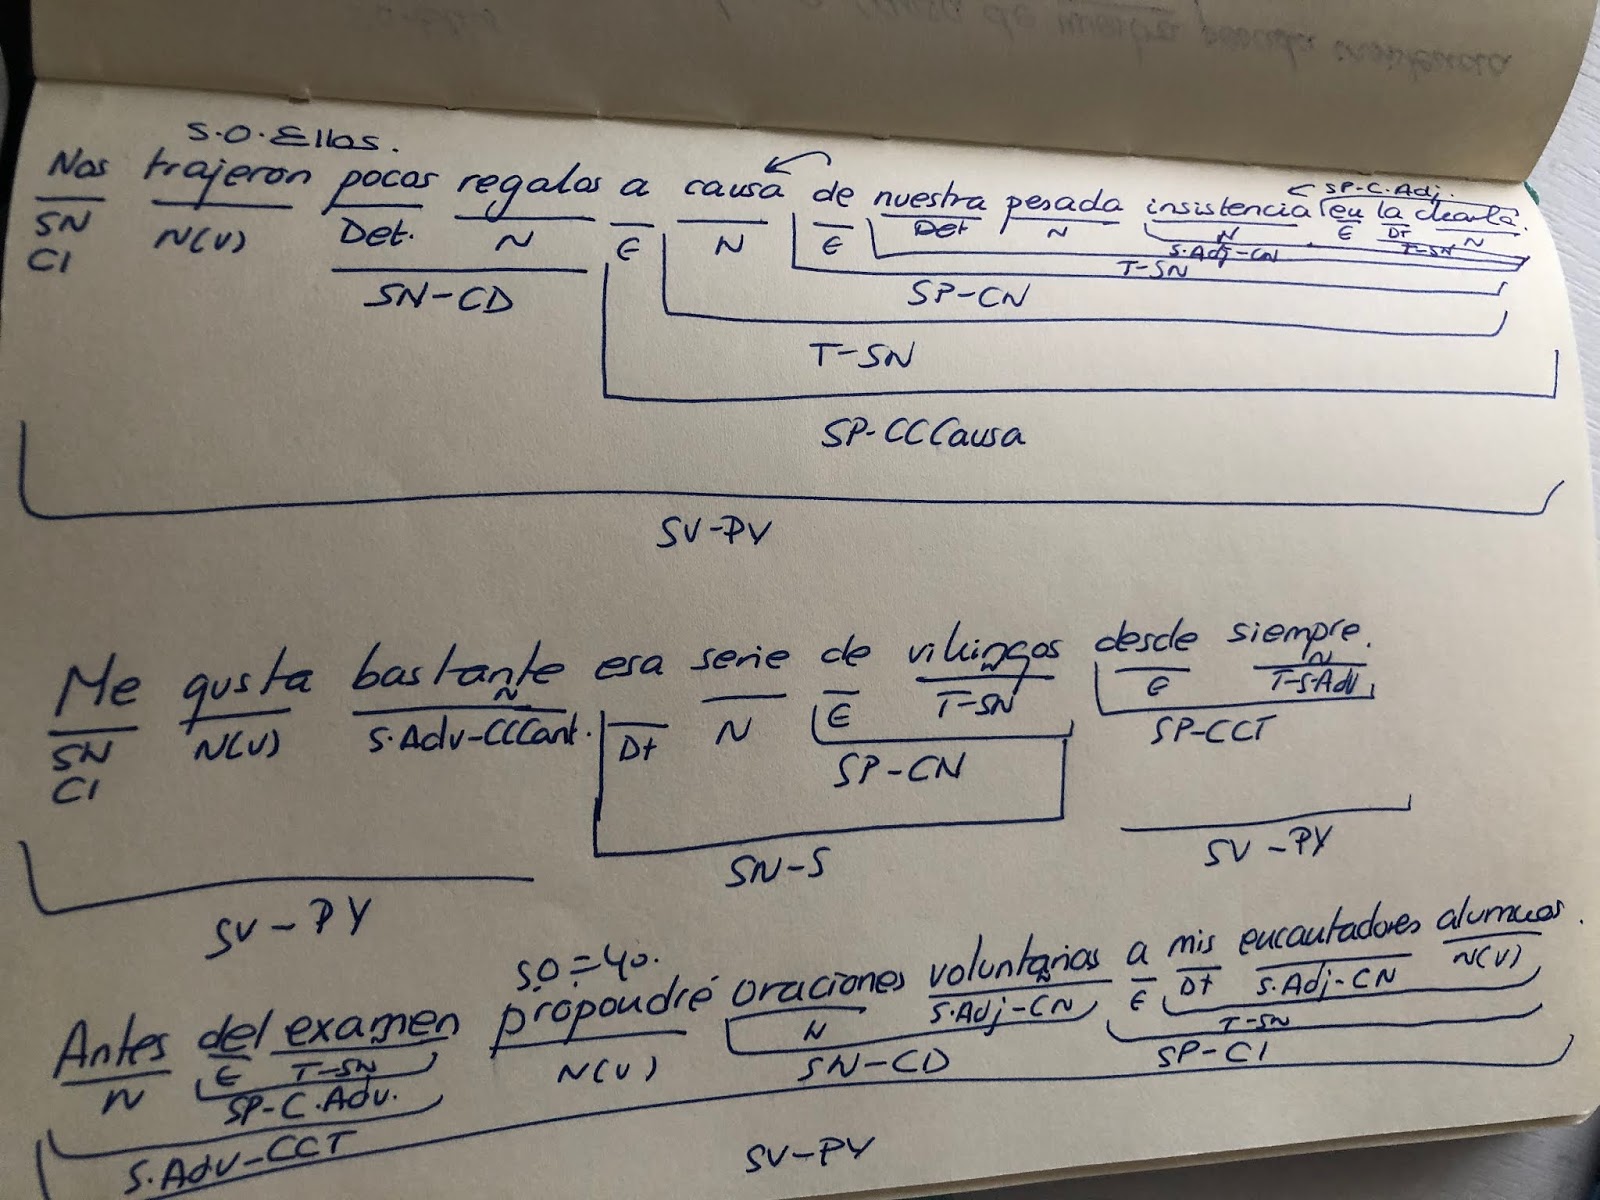 S.O. Ellos.
Nos trajeron pocos regalos a causa de nuestra pesada insistencia en la charla.
SP-C.Adj.
SN N(V) Det. N E N E Det N N E Dt N
CI S.Adj-CN T-SN
T-SN
SN-CD SP-CN
T-SN
SP-CCCausa
SV-PV
Me gusta bastante esa serie de vikingos desde siempre.
N N N
SN N(V) S.Adv-CCCant. Dt N E T-SN E T-S.Adv
CI SP-CN SP-CCT
SN-S SV-PV
SV-PV
SO=Yo.
Antes del examen propondré oraciones voluntarias a mis encantadores alumnos.
N E T-SN N(V) N S.Adj-CN E Dt S.Adj-CN N(V)
SP-C.Adv. SN-CD T-SN
SP-CI
S.Adv-CCT
SV-PV